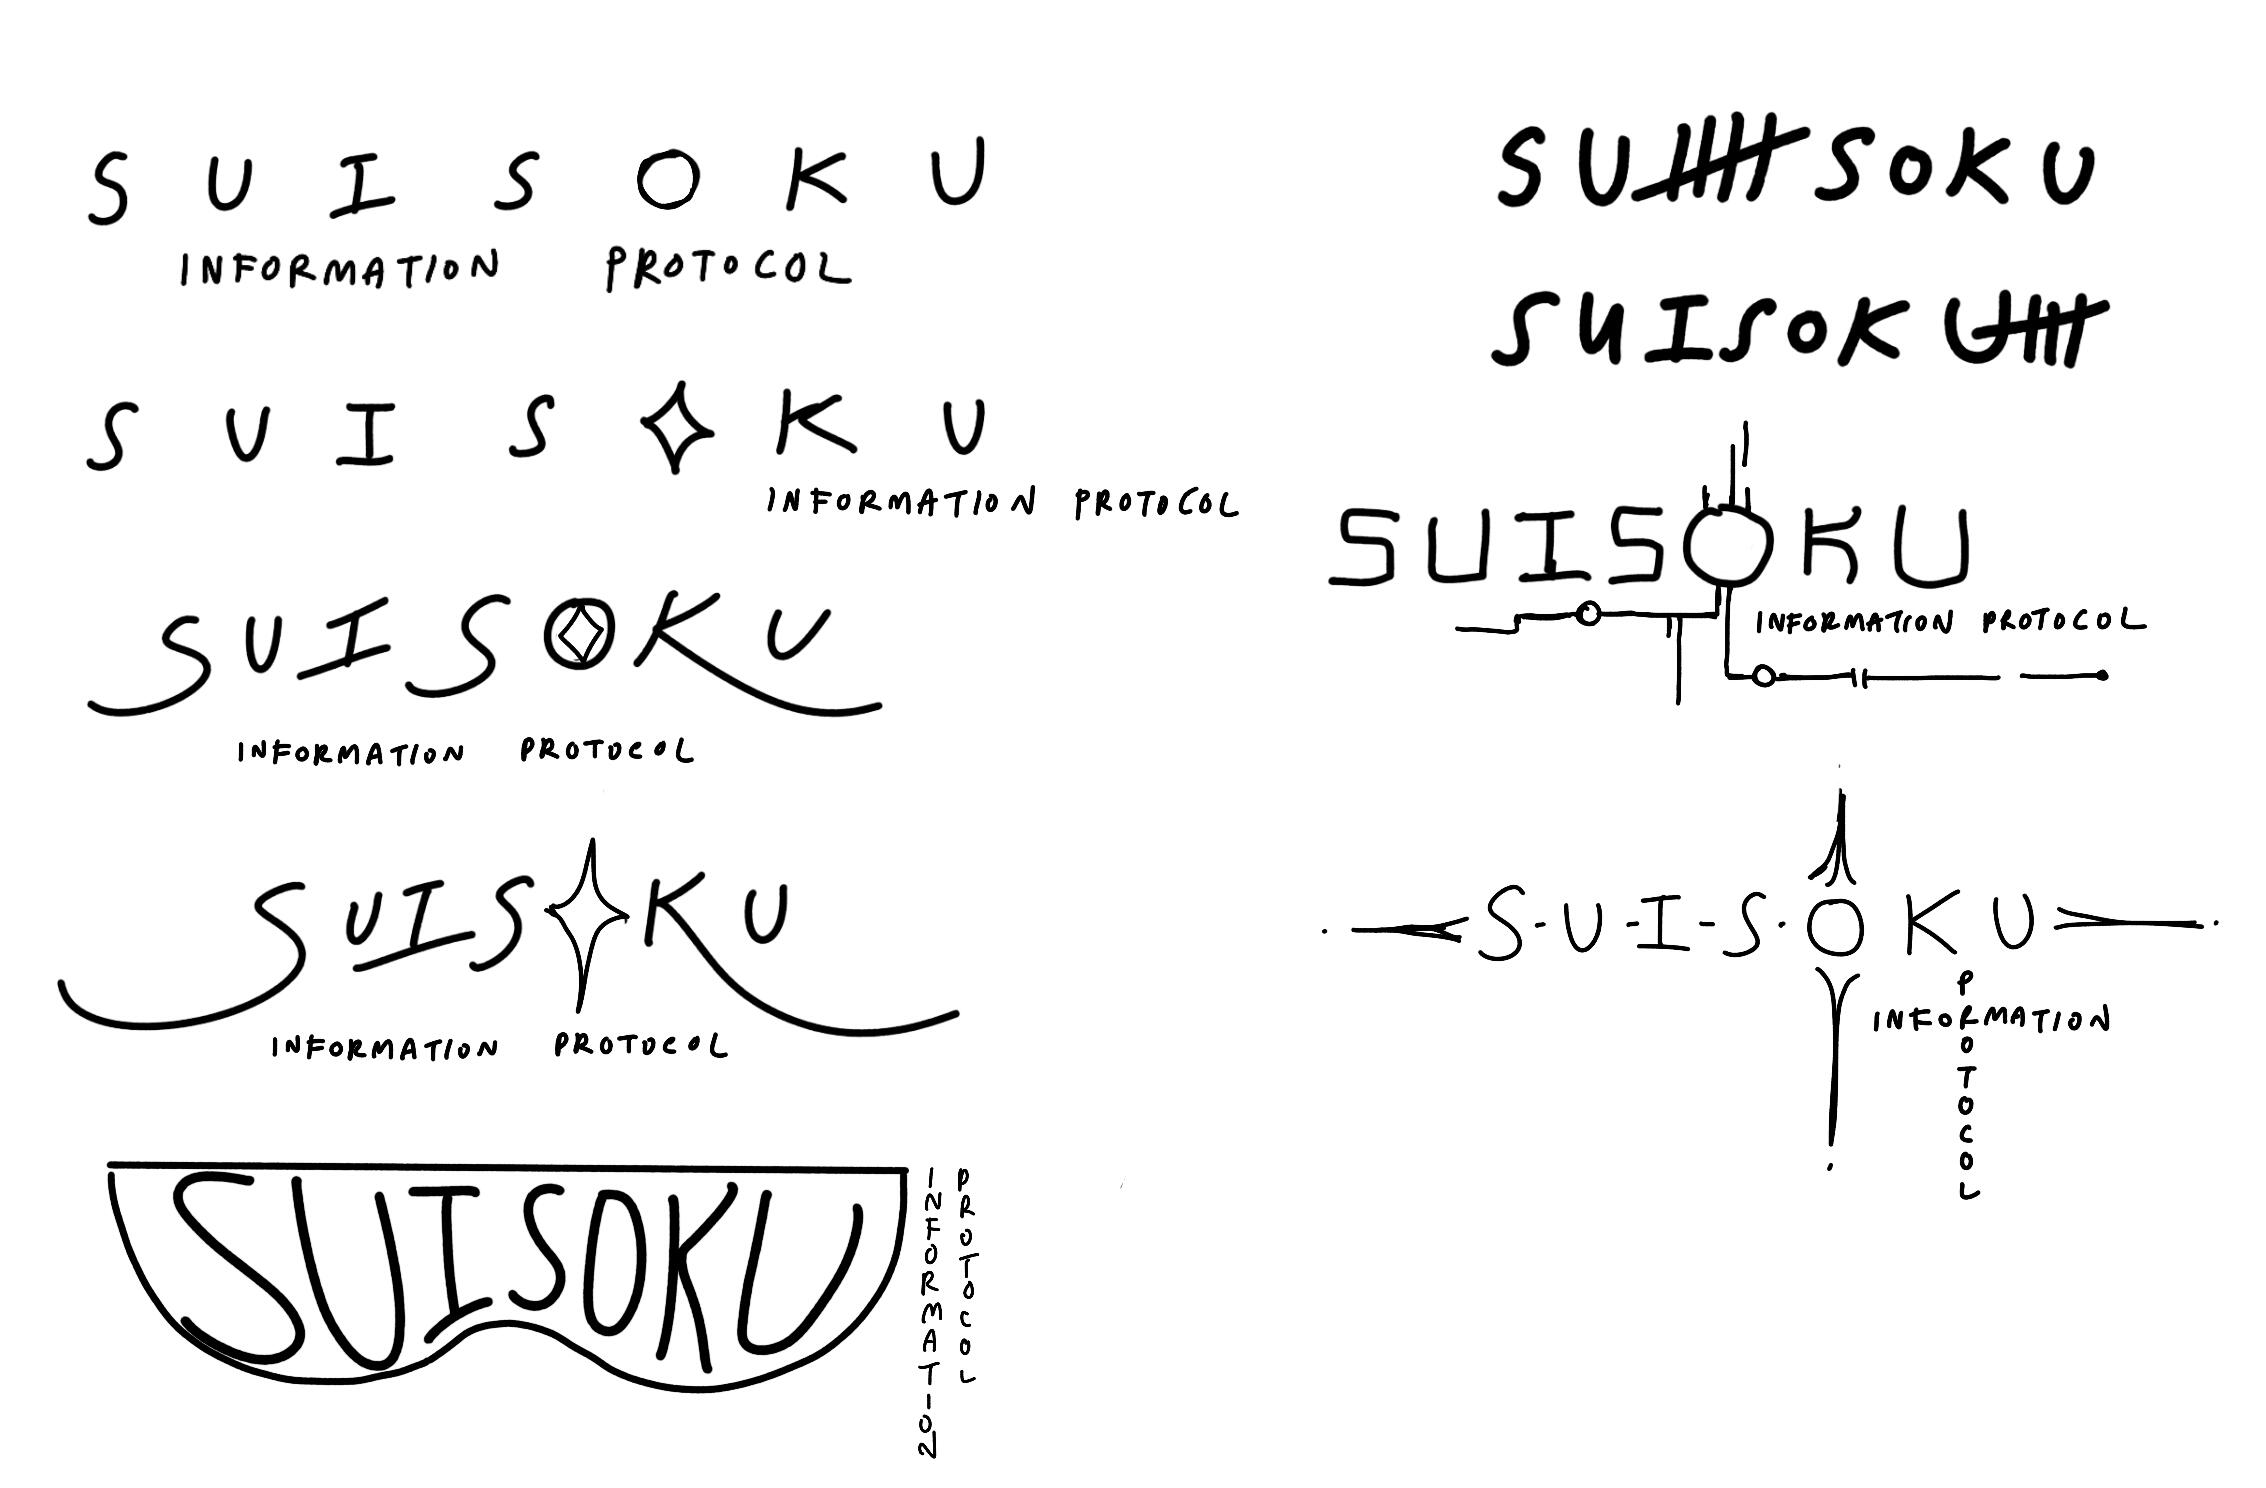 SUISOKU
INFORMATION PROTOCOL
SUIS KU
INFORMATION PROTOCOL
SUISOKU
INFORMATION PROTOCOL
SUIS KU
INFORMATION PROTOCOL
SUISOKU
INFORMATION
PROTOCOL
SU SOKU
SUISOKU
SUISOKU
INFORMATION PROTOCOL
S-U-I-S·OKU
INFORMATION
PROTOCOL